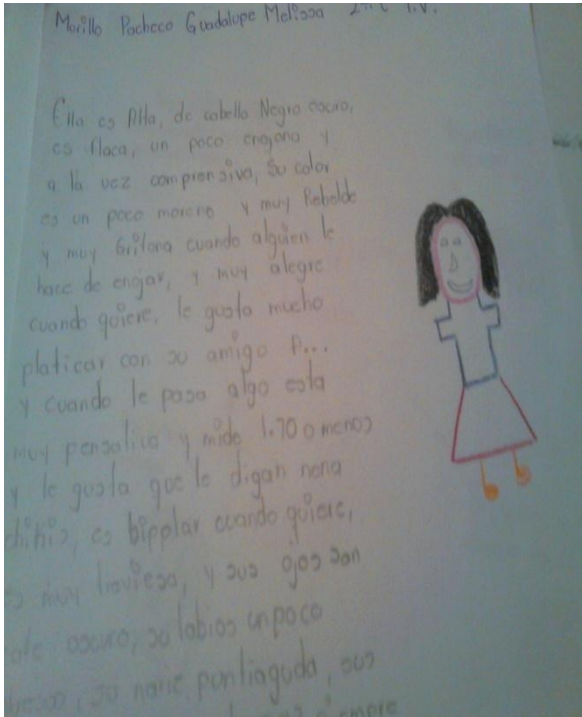 Morillo Pacheco Guadalupe Melissa 2
Ella es Alta, de cabello Negro oscuro,
es flaca, un poco enojona y
a la vez comprensiva, su color
es un poco moreno y muy Rebelde
y muy Gritona cuando alguien le
hace de enojar, y muy alegre
cuando quiere, le gusta mucho
platicar con su amigo P...
y cuando le pasa algo esta
muy pensativa y mide 1.70 o menos
y le gusta que le digan nena
es bipolar cuando quiere,
muy traviesa, y sus ojos son
oscuro, su labios un poco
su narie puntiaguda, sus
siempre